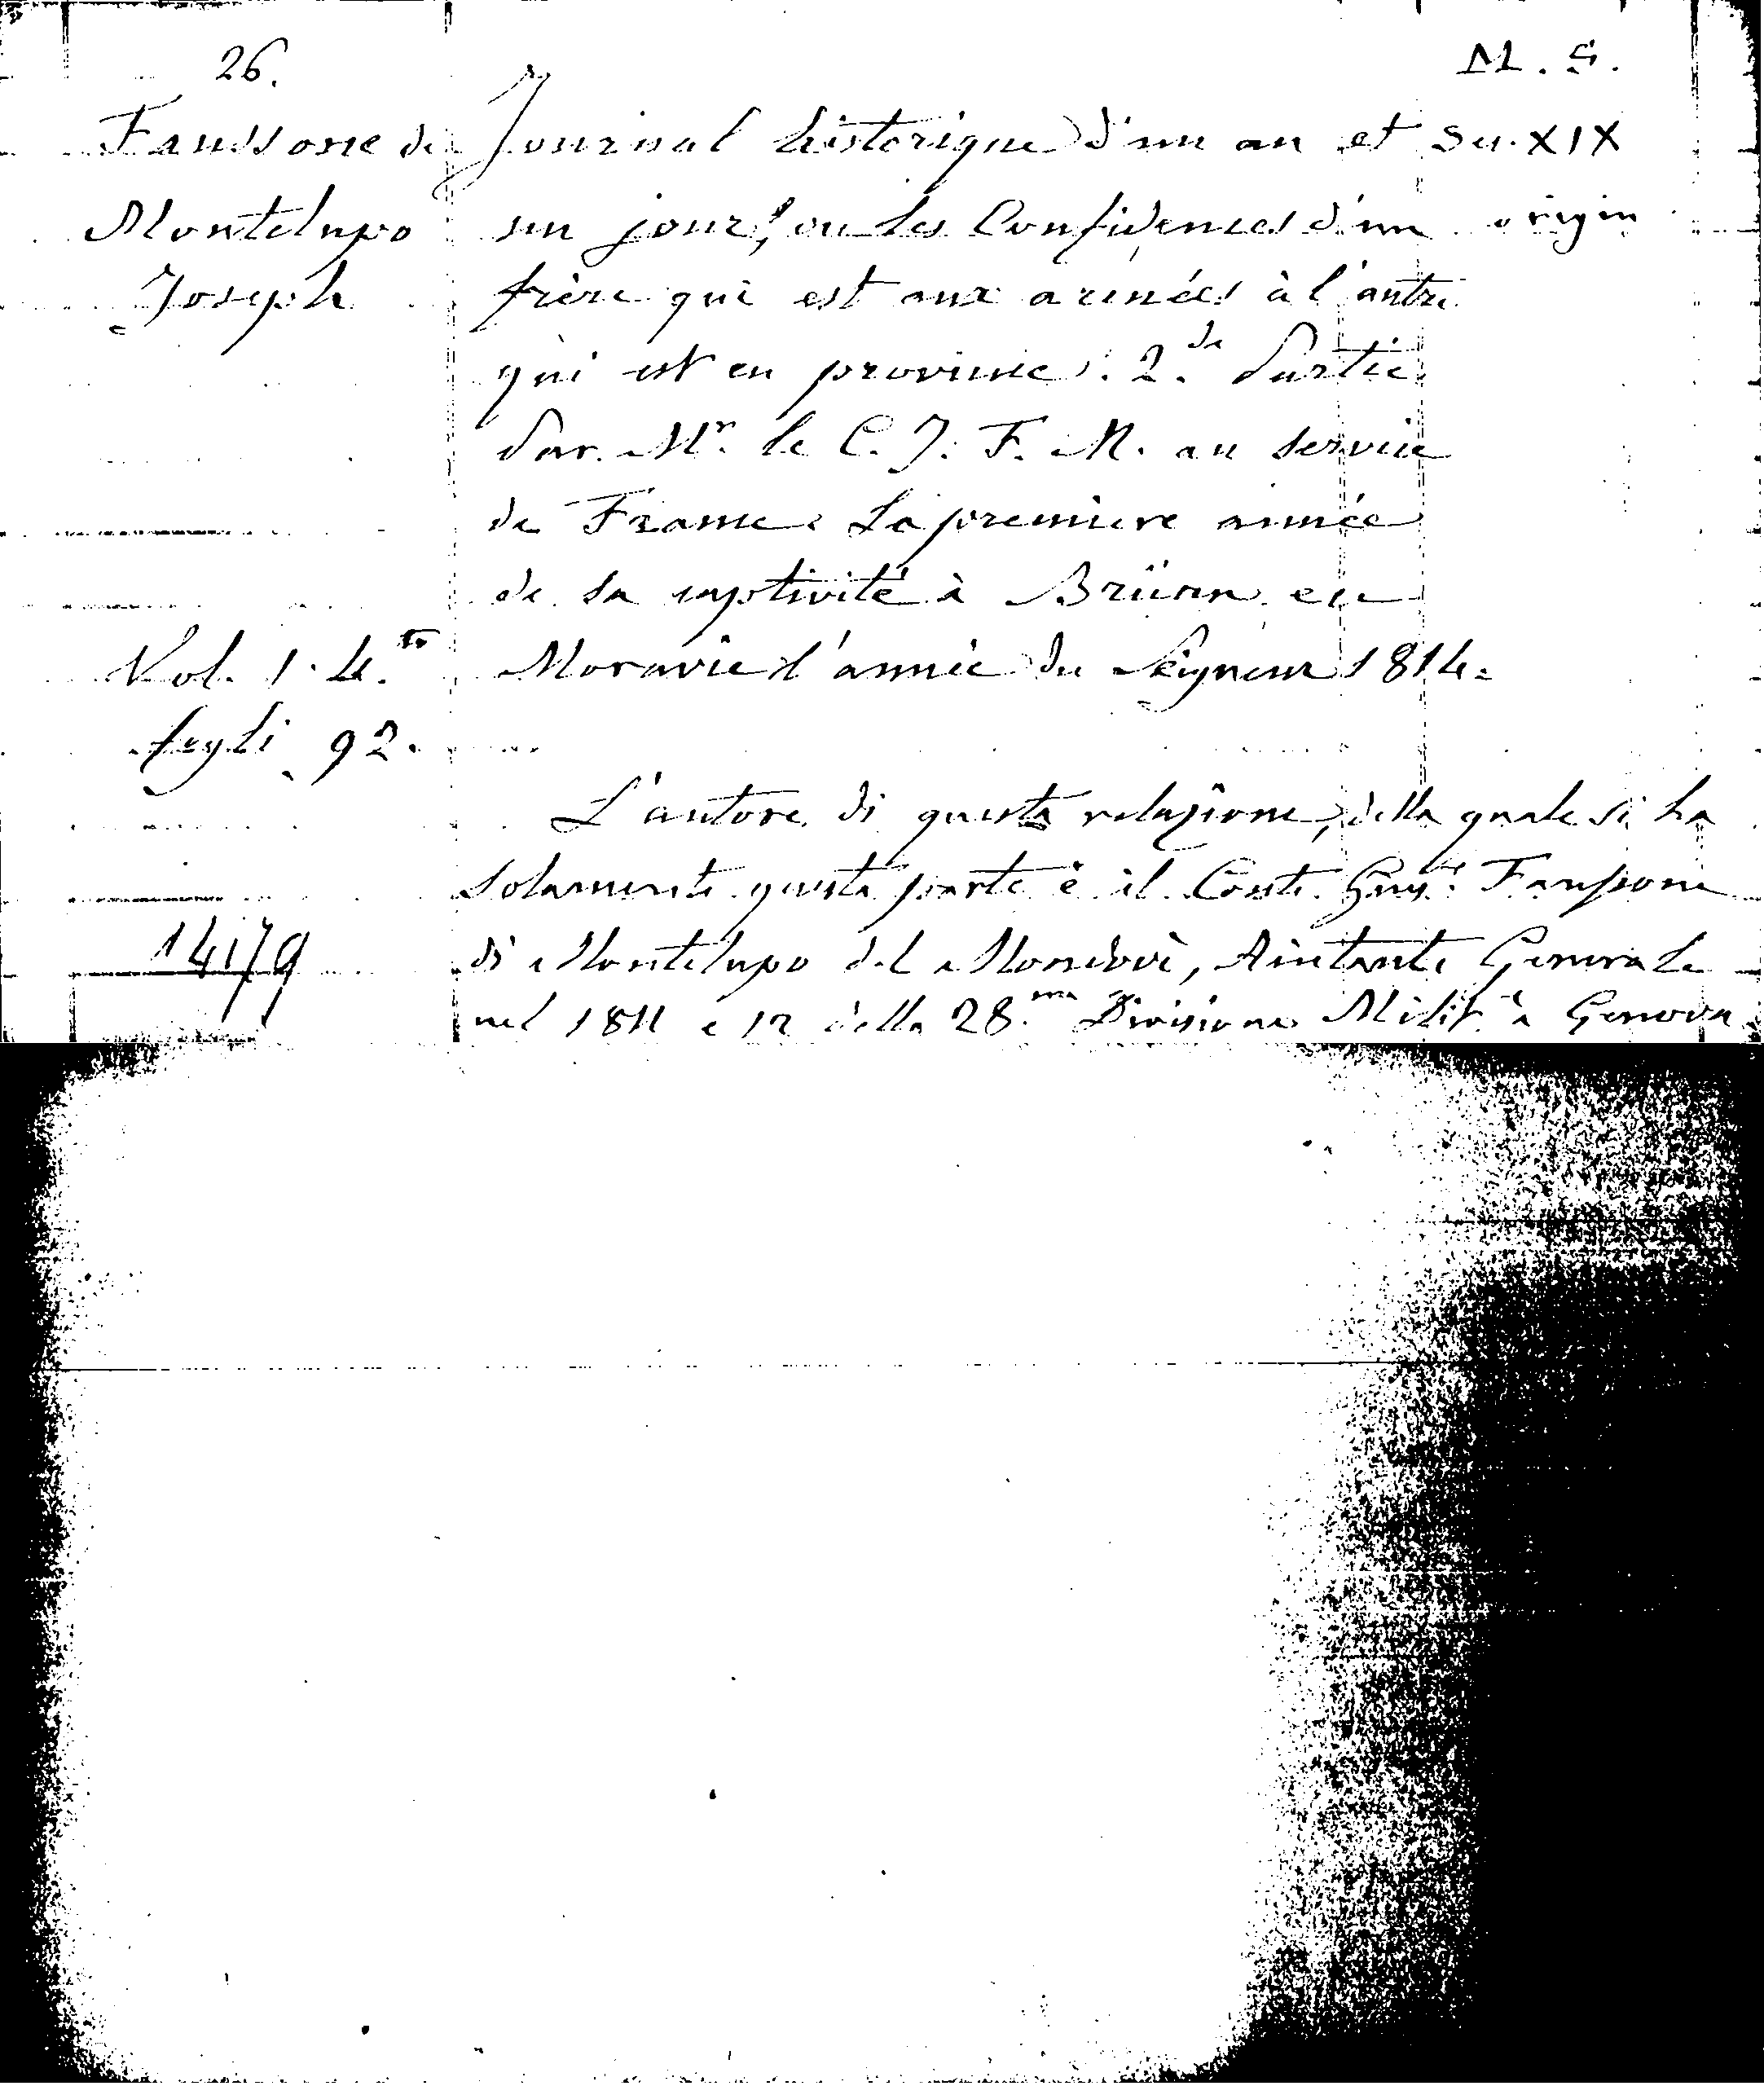 26.
M. S.
Faussone de
Montelupo
Joseph
Journal historique d'un an et
un jour, ou les Confidences d'un
frère qui est aux armées à l'autre
qui est en province. 2.de Partie
Par Mr. le C. J. F. M. au service
de France. La premiere année
de sa captivité à Brünn en
Moravie l'année du Seigneur 1814.
Sec. XIX
origin
Vol. 1. 4.to
fogli 92.
1479
L'autore di questa relazione, della quale si ha
solamente questa parte è il Conte Gius.e Faussone
di Montelupo del Mondovì, Aiutante Generale
nel 1811 e 12 della 28.ma Divisione Milit.e a Genova